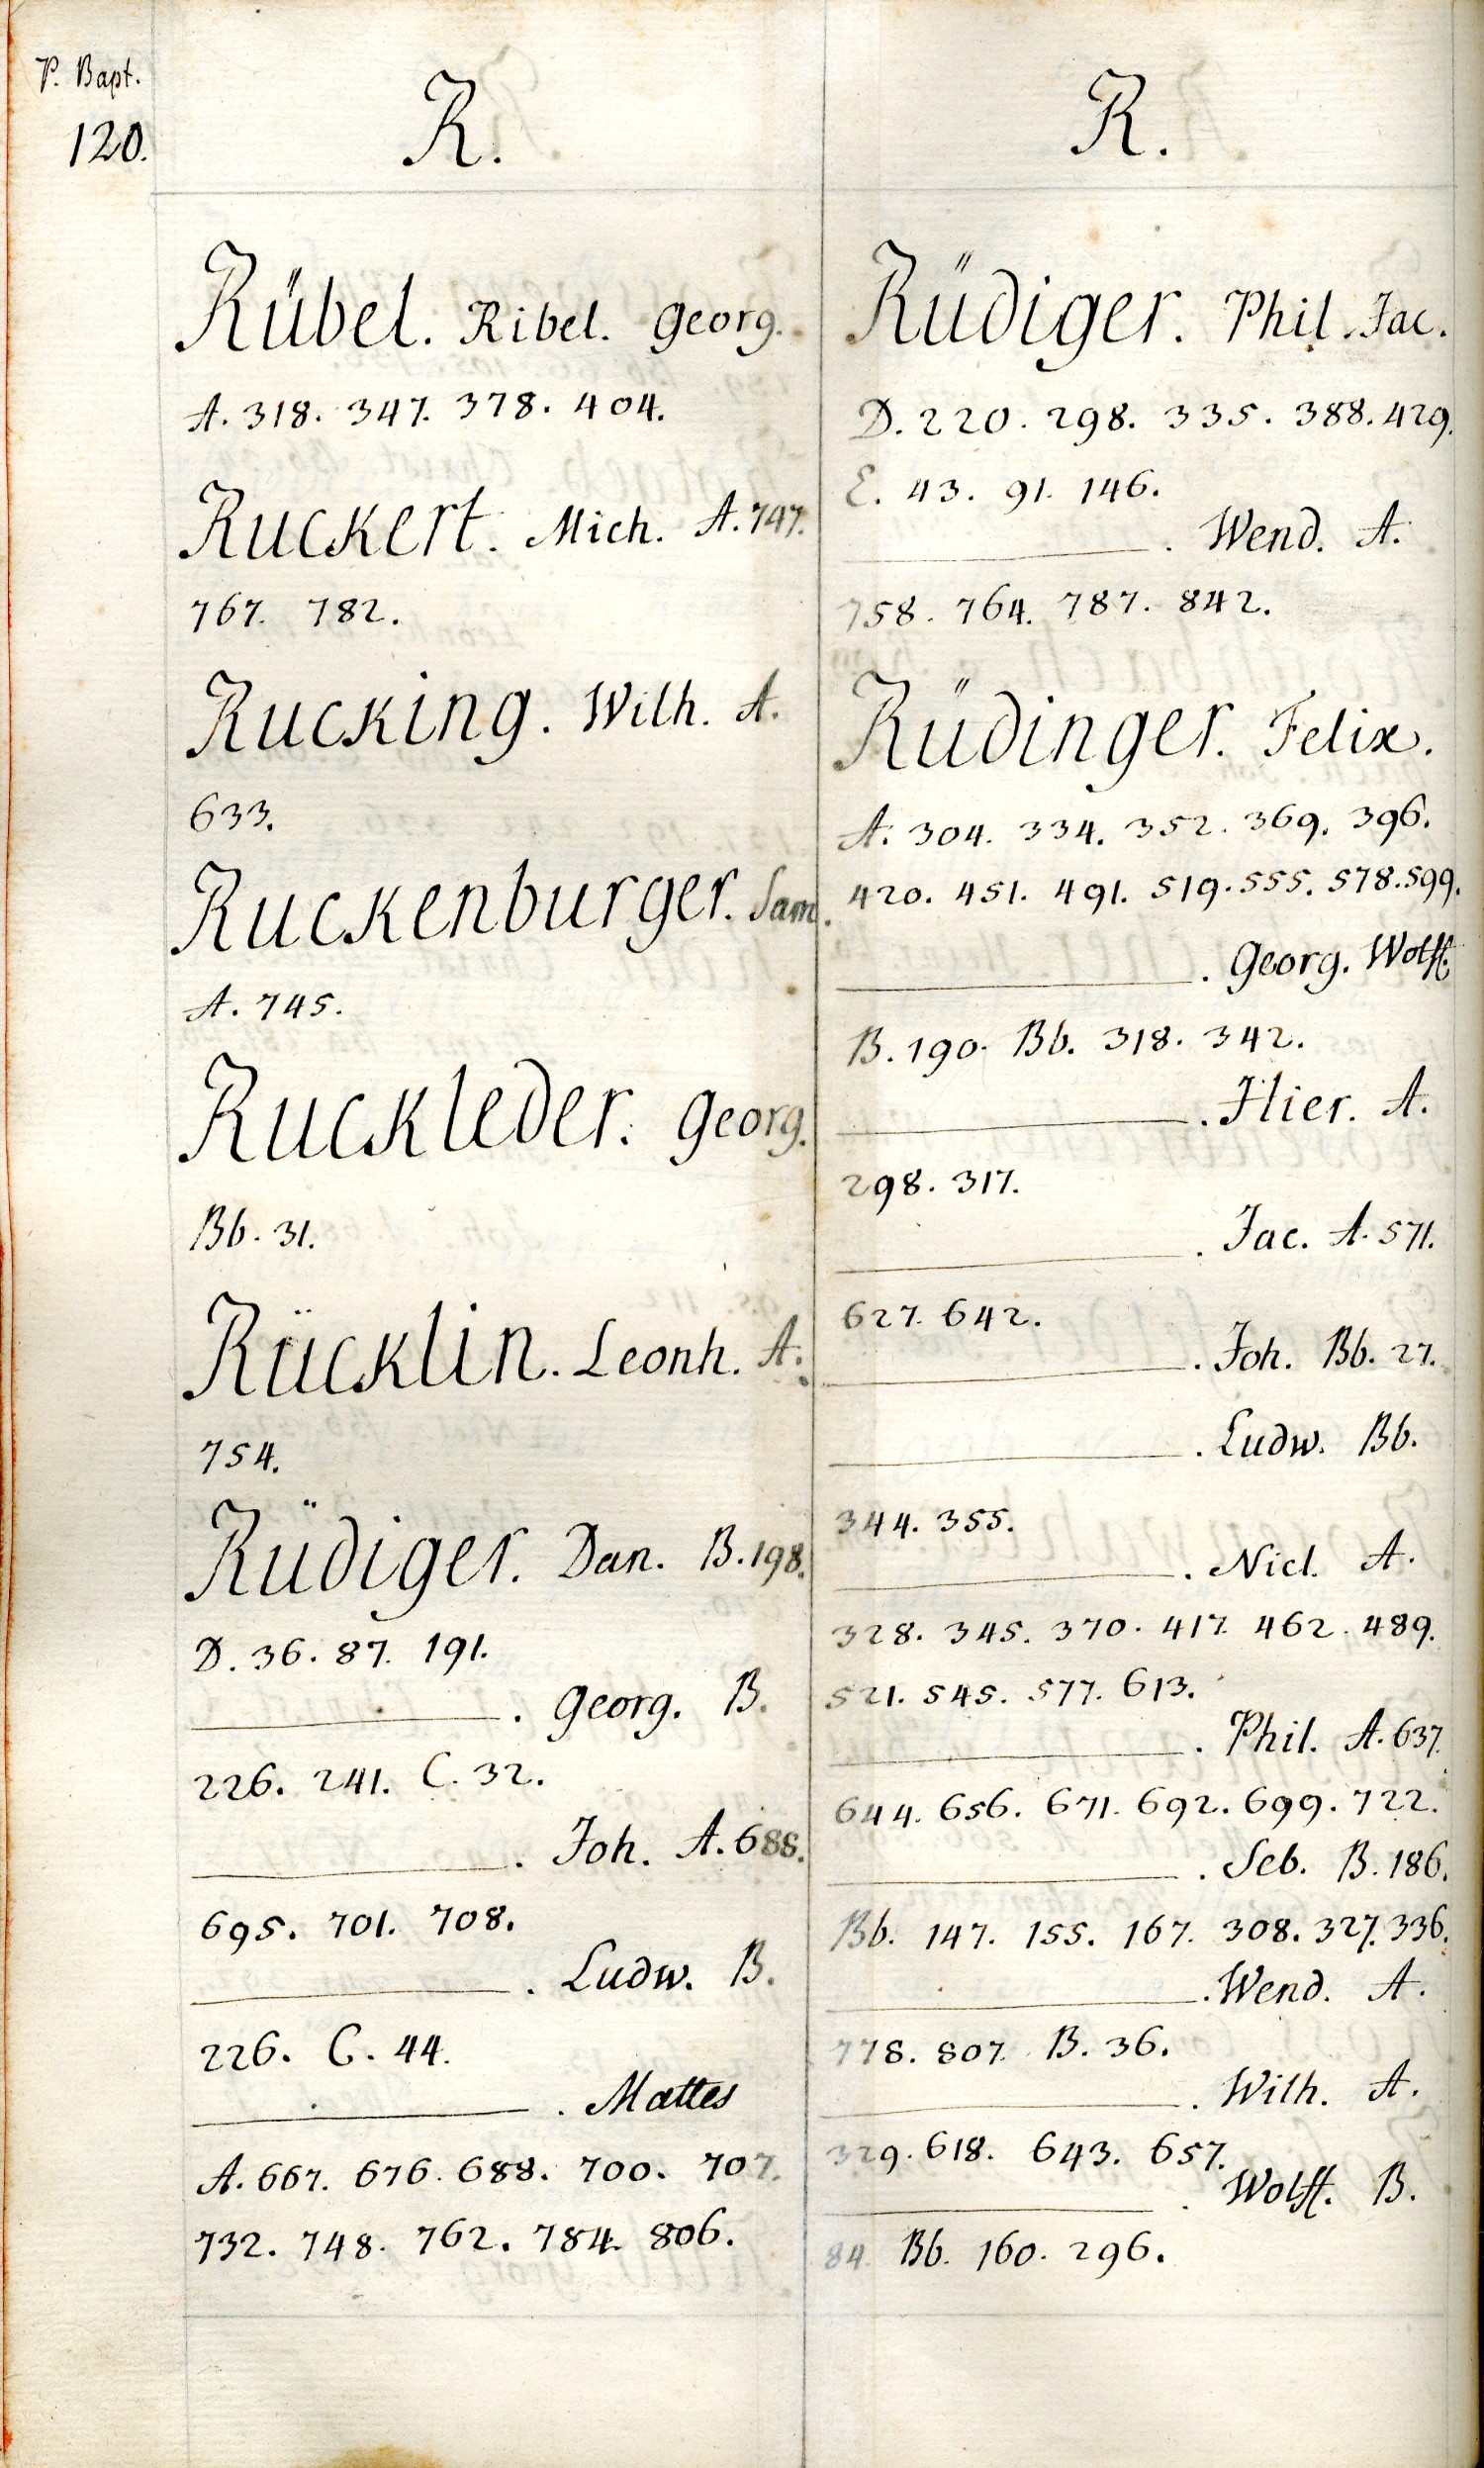 P. Bapt.
120.
R.
Rübel. Ribel. Georg.
A. 318. 347. 378. 404.
Ruckert. Mich. A. 747.
767. 782.
Rucking. Wilh. A.
633.
Ruckenburger. Sam.
A. 745.
Ruckleder. Georg.
Bb. 31.
Rücklin. Leonh. A.
754.
Rüdiger. Dan. B. 198.
D. 36. 87. 191.
———. Georg. B.
226. 241. C. 32.
———. Joh. A. 688.
695. 701. 708.
———. Ludw. B.
226. C. 44.
———. Mattes
A. 667. 676. 688. 700. 707.
732. 748. 762. 784. 806.
R.
Rüdiger. Phil. Jac.
D. 220. 298. 335. 388. 429.
E. 43. 91. 146.
———. Wend. A.
758. 764. 787. 842.
Rüdinger. Felix.
A. 304. 334. 352. 369. 396.
420. 451. 491. 519. 555. 578. 599.
———. Georg. Wolff.
B. 190. Bb. 318. 342.
———. Hier. A.
298. 317.
———. Jac. A. 571.
627. 642.
———. Joh. Bb. 27.
———. Ludw. Bb.
344. 355.
———. Nicl. A.
328. 345. 370. 417. 462. 489.
521. 545. 577. 613.
———. Phil. A. 637.
644. 656. 671. 692. 699. 722.
———. Seb. B. 186.
Bb. 147. 155. 167. 308. 327. 336.
———. Wend. A.
778. 807. B. 36.
———. Wilh. A.
329. 618. 643. 657.
———. Wolff. B.
84. Bb. 160. 296.